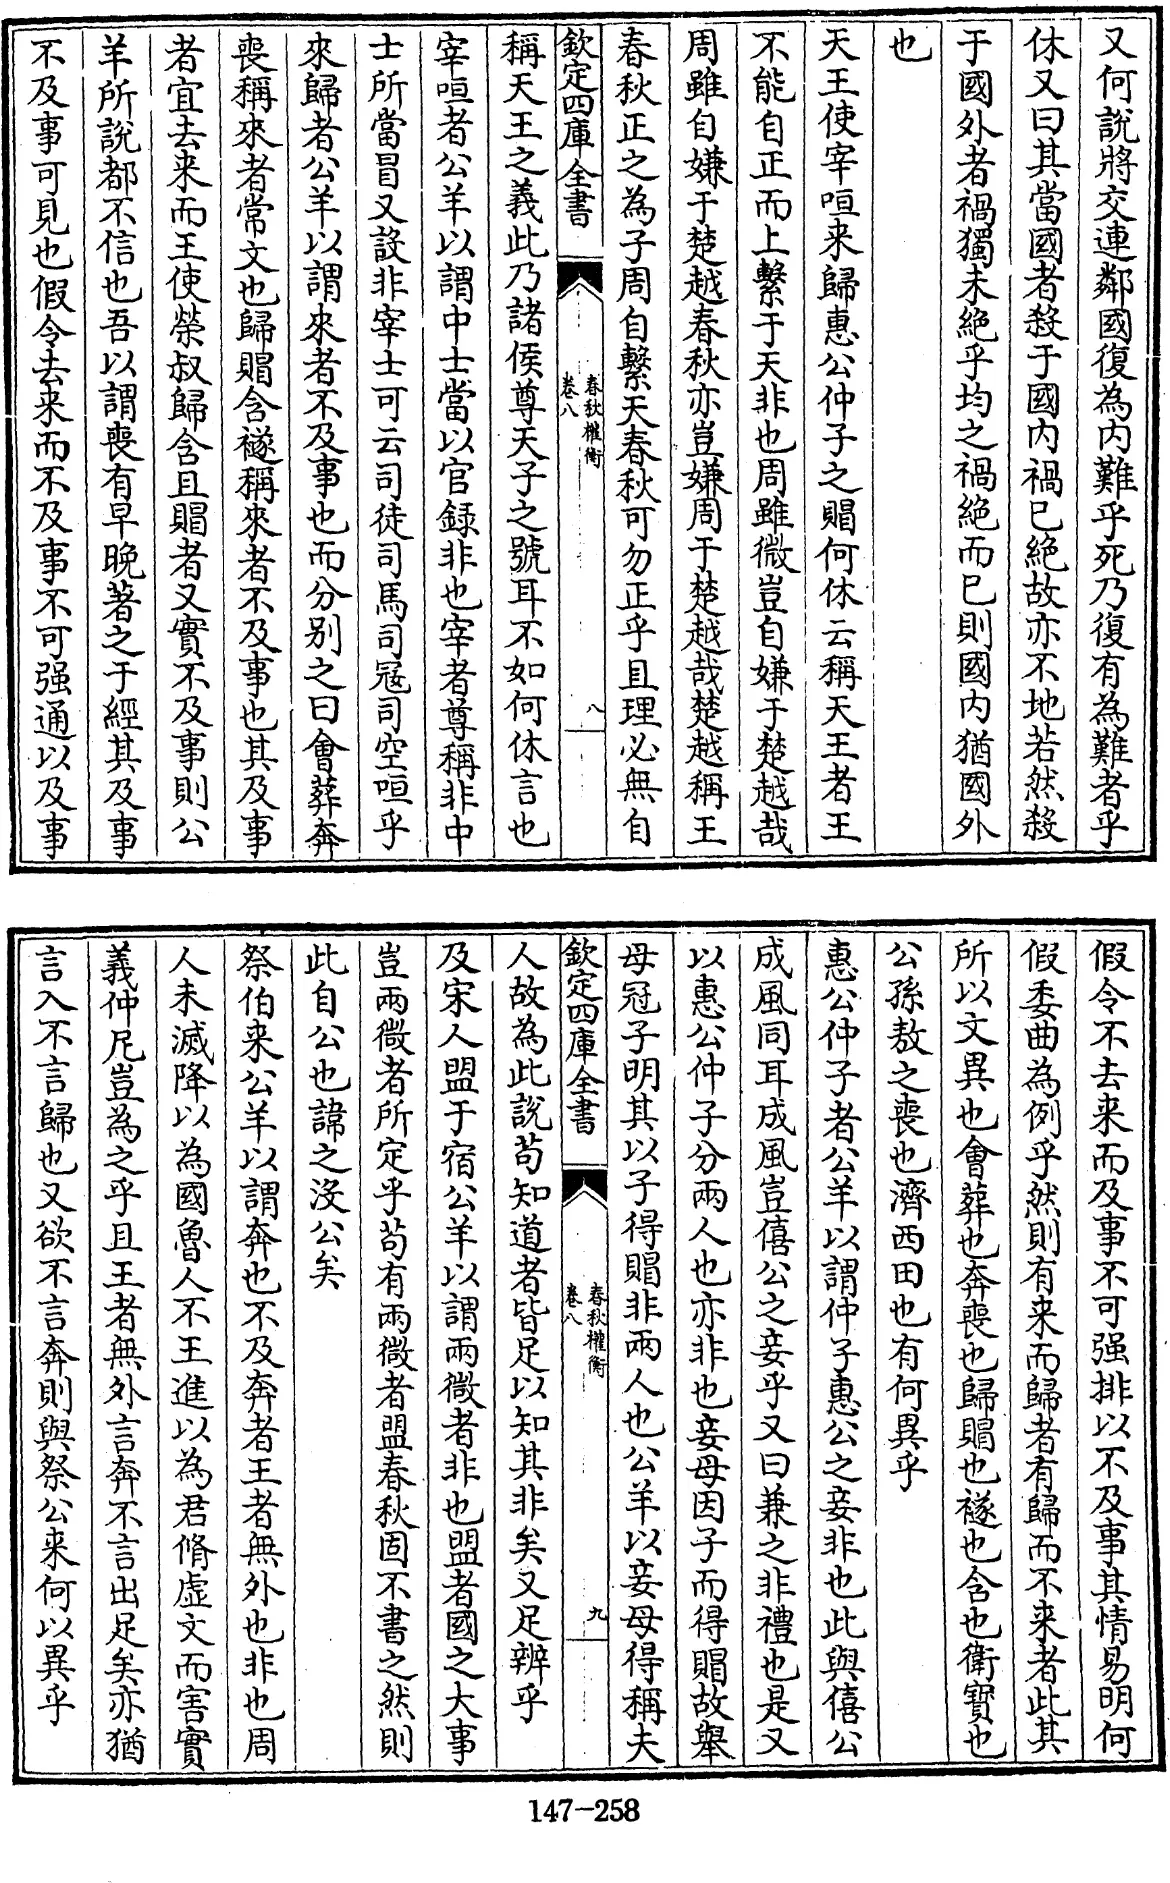 又何說將交連鄰國復為内難乎死乃復有為難者乎
休又曰其當國者殺于國内禍已絶故亦不地若然殺
于國外者禍獨未絶乎均之禍絶而已則國内猶國外
也
天王使宰咺来歸惠公仲子之賵何休云稱天王者王
不能自正而上繫于天非也周雖微豈自嫌于楚越哉
周雖自嫌于楚越春秋亦豈嫌周于楚越哉楚越稱王
春秋正之為子周自繫天春秋可勿正乎且理必無自
欽定四庫全書
春秋權衡
卷八
八
稱天王之義此乃諸侯尊天子之號耳不如何休言也
宰咺者公羊以謂中士當以官録非也宰者尊稱非中
士所當冒又設非宰士可云司徒司馬司冦司空咺乎
來歸者公羊以謂來者不及事也而分别之曰會葬奔
喪稱來者常文也歸賵含襚稱來者不及事也其及事
者宜去来而王使榮叔歸含且賵者又實不及事則公
羊所說都不信也吾以謂喪有早晚著之于經其及事
不及事可見也假令去来而不及事不可强通以及事
假令不去来而及事不可强排以不及事其情易明何
假委曲為例乎然則有来而歸者有歸而不来者此其
所以文異也會葬也奔喪也歸賵也襚也含也衛寳也
公孫敖之喪也濟西田也有何異乎
惠公仲子者公羊以謂仲子惠公之妾非也此與僖公
成風同耳成風豈僖公之妾乎又曰兼之非禮也是又
以惠公仲子分兩人也亦非也妾母因子而得賵故舉
母冠子明其以子得賵非兩人也公羊以妾母得稱夫
欽定四庫全書
春秋權衡
卷八
九
人故為此說苟知道者皆足以知其非矣又足辨乎
及宋人盟于宿公羊以謂兩微者非也盟者國之大事
豈兩微者所定乎苟有兩微者盟春秋固不書之然則
此自公也諱之沒公矣
祭伯来公羊以謂奔也不及奔者王者無外也非也周
人未滅降以為國魯人不王進以為君脩虚文而害實
義仲尼豈為之乎且王者無外言奔不言出足矣亦猶
言入不言歸也又欲不言奔則與祭公来何以異乎
147-258